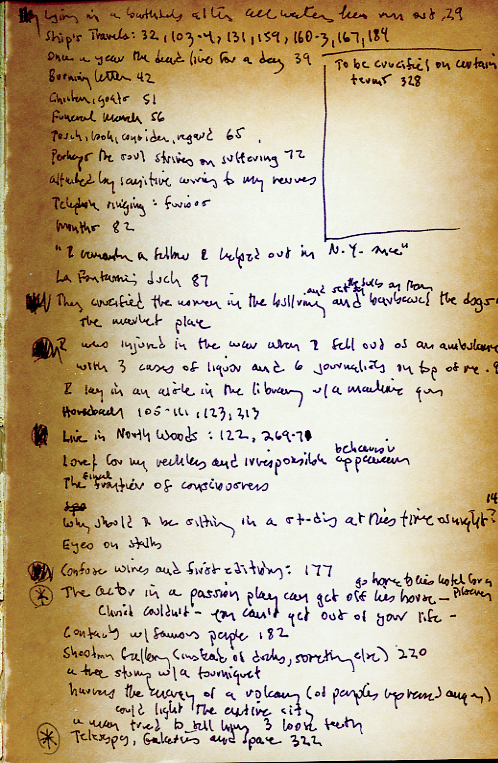 lying in a bathtub after all water has run out, 29
Ship's Travels: 32, 103-4, 131, 159, 160-3, 167, 184
Once a year the dead live for a day 39
To be crucified on certain
terms 328
Burning letter 42
Chicken, goats 51
Funeral March 56
Perch, look, consider, regard 65
Perhaps the soul strives on suffering 72
attached by sensitive wiring to my nerves
Telephone ringing: furioso
months 82
"I remember a fellow I helped out in N.Y. once"
La Fontaine's duck 87
They crucified the women in the bullring and set the bulls on them and barbecued the dogs
the market place
I was injured in the war when I fell out of an ambulance
with 3 cases of liquor and 6 journalists on top of me.
I lay in an aisle in the library w/a machine gun
Horseback 105-111, 123, 213
Live in North Woods: 122, 269-70
Loved for my reckless and irresponsible behavior appearance
The final frontier of consciousness
Why should I be sitting in a at this time of night?
Eyes on stalks
Confuse wines and first editions: 177
The actor in a passion play can get off his horse – go home to his hotel for a
Christ couldn't – you can't get out of your life –
Contacts w/ famous people 182
Shooting Gallery (instead of ducks, something else) 220
a tree stump w/a tourniquet
harness the energy of a volcano (of people's repressed anger)
could light the entire city
a man tried to sell him 3 loose teeth
Telescopes, Galaxies and space 322